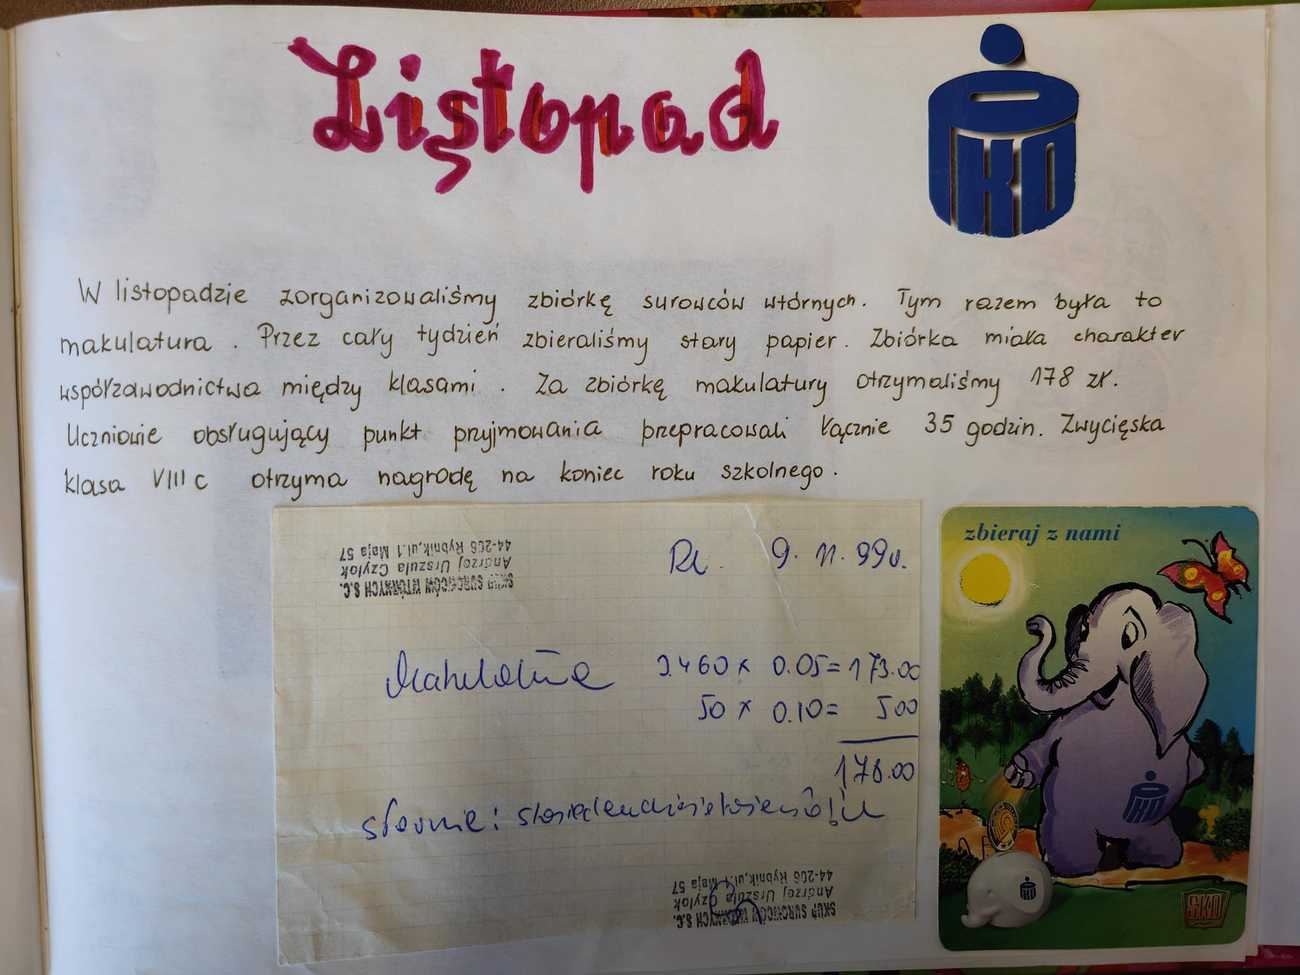 Listopad
PKO
W listopadzie zorganizowaliśmy zbiórkę surowców wtórnych. Tym razem była to
makulatura. Przez cały tydzień zbieraliśmy stary papier. Zbiórka miała charakter
współzawodnictwa między klasami. Za zbiórkę makulatury otrzymaliśmy 178 zł.
Uczniowie obsługujący punkt przyjmowania przepracowali łącznie 35 godzin. Zwycięska
klasa VIII c otrzyma nagrodę na koniec roku szkolnego.
SKUP SUROWCÓW WTÓRNYCH S.C.
Andrzej Urszula Czylok
44-206 Rybnik, ul.1 Maja 57
9. 11. 99r.
Makulatura 3460 x 0.05= 173.00
50 x 0.10= 5.00
178.00
słownie: stosiedemdziesiątosiem
SKUP SUROWCÓW WTÓRNYCH S.C.
Andrzej Urszula Czylok
44-206 Rybnik, ul.1 Maja 57
zbieraj z nami
PKO
SKO